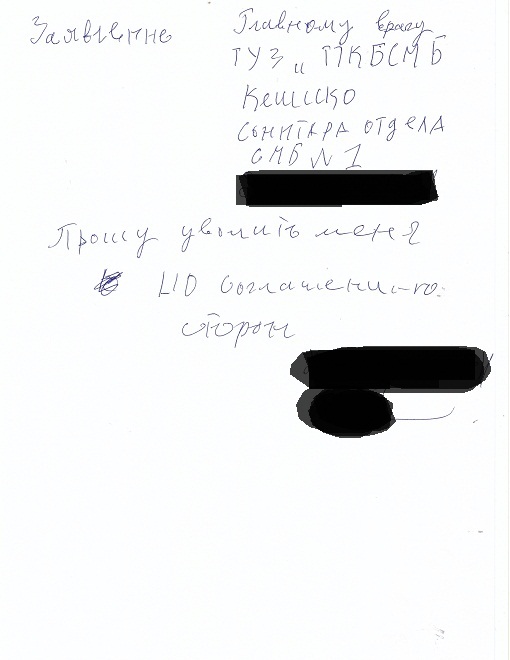 Заявление
Главному врачу
ГУЗ " ПКБСМБ
Кешиско
санитара отдела
СМБ N 1
Прошу уволить меня
по соглашению
сторон